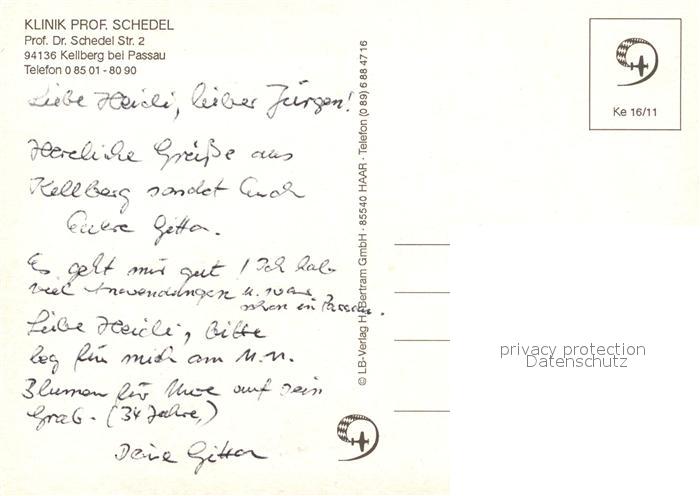 KLINIK PROF. SCHEDEL
Prof. Dr. Schedel Str. 2
94136 Kellberg bei Passau
Telefon 0 85 01 - 80 90
Liebe Heidi, lieber Jürgen!
Herzliche Grüße aus
Kellberg sendet Euch
Eure Gitta.
Es geht mir gut! Ich habe
viel Anwendungen u. war
schon in Passau.
Liebe Heidi, bitte
leg für mich am
Blumen für Uwe auf sein
Grab. (34 Jahre)
Deine Gitta
© LB-Verlag H. Bertram GmbH · 85540 HAAR · Telefon (0 89) 6 88 47 16
Ke 16/11
privacy protection
Datenschutz